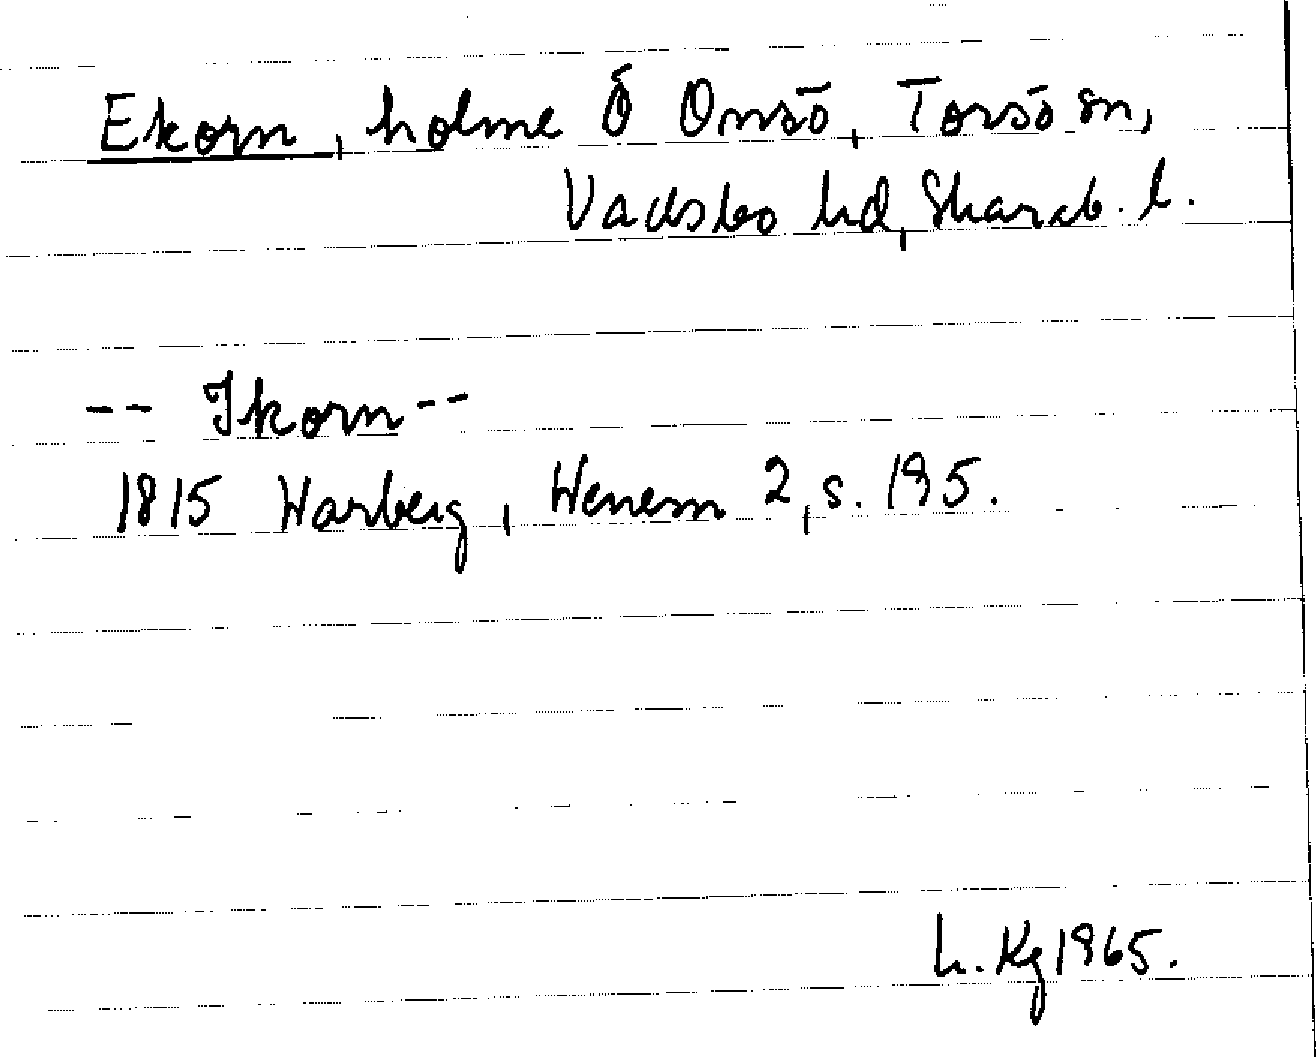 Ekorn, holme Ö Onsö, Torsö sn,
Vadsbo hd, Skarab. l.
-- Ikorn --
1815 Warberg, Wenern 2, s. 195.
L. Kg 1965.